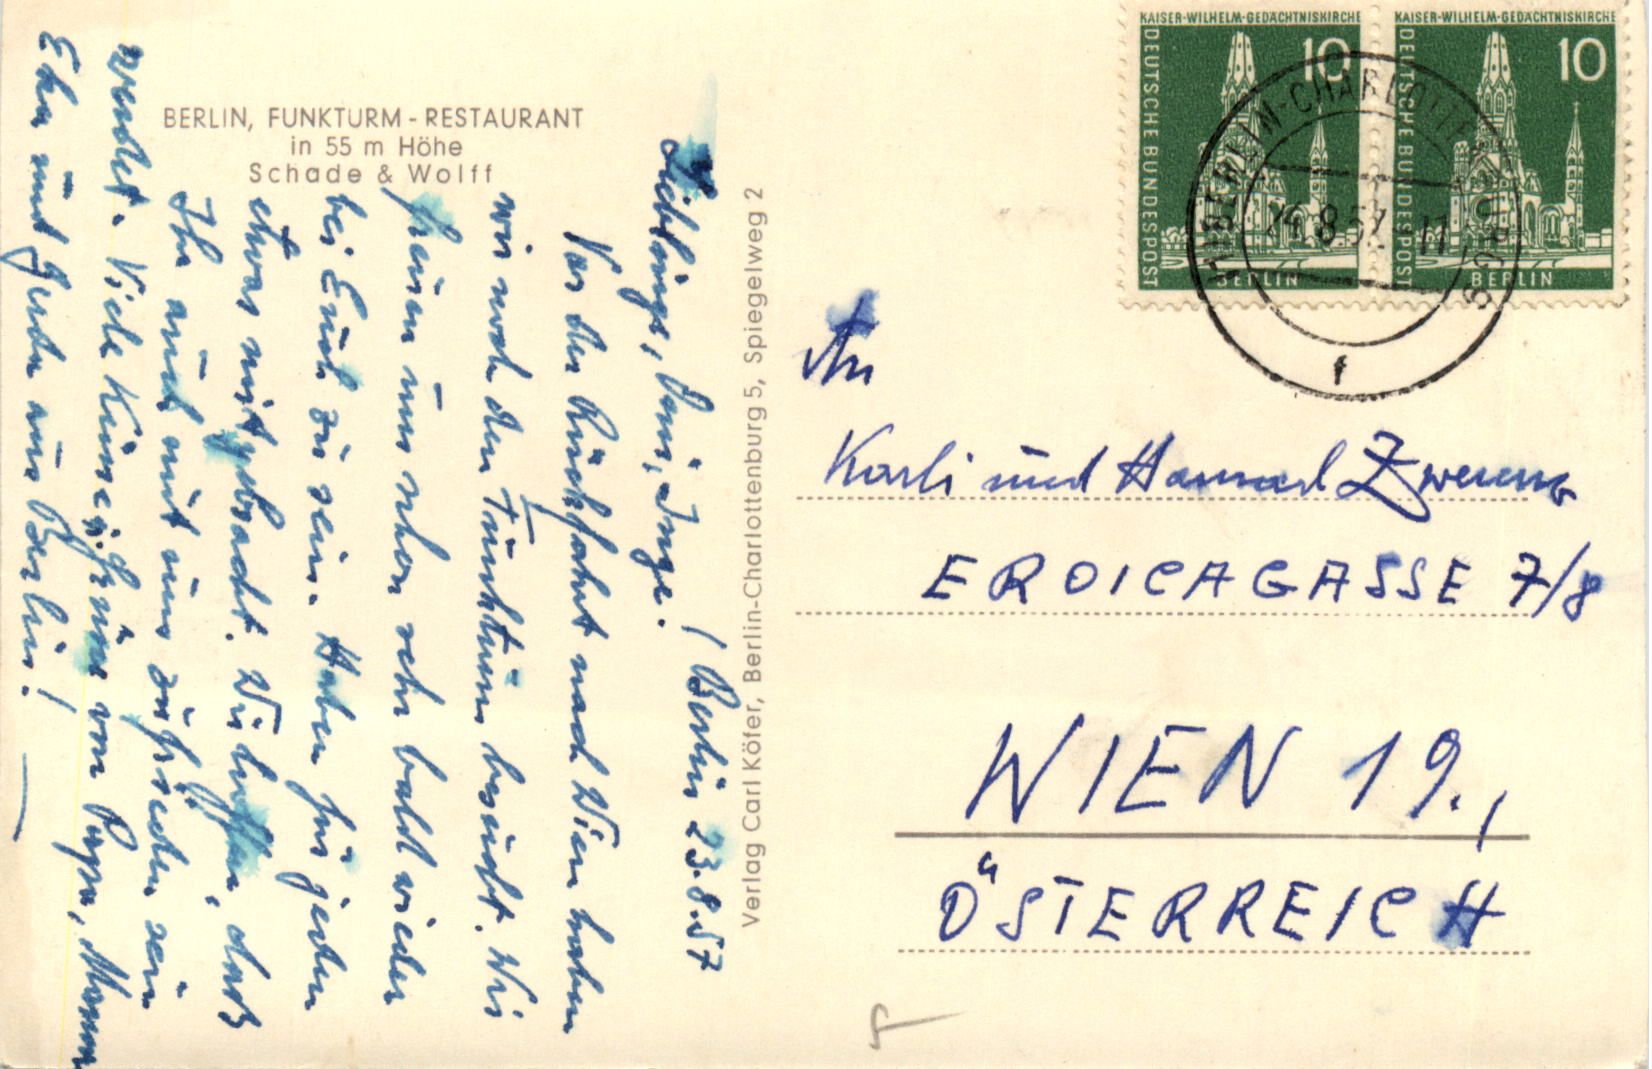 BERLIN, FUNKTURM - RESTAURANT
in 55 m Höhe
Schade & Wolff
Berlin 23.8.57
Lieblinge, Inge.
Vor der Rückfahrt nach Wien haben
wir noch den Funkturm besucht. Wir
freuen uns schon sehr bald wieder
bei Euch zu sein. Haben für jeden
etwas mitgebracht. Wir hoffen, daß
Ihr auch mit uns zufrieden sein
werdet. Viele Küsse, von Papa, Mama
und Gerda aus Berlin!
Verlag Carl Köfer, Berlin-Charlottenburg 5, Spiegelweg 2
KAISER-WILHELM-GEDÄCHTNISKIRCHE
DEUTSCHE BUNDESPOST
10
BERLIN
KAISER-WILHELM-GEDÄCHTNISKIRCHE
DEUTSCHE BUNDESPOST
10
BERLIN
BERLIN-CHARLOTTENBURG
24.8.57
f
An
Karli und
EROICAGASSE 7/8
WIEN 19.,
ÖSTERREICH